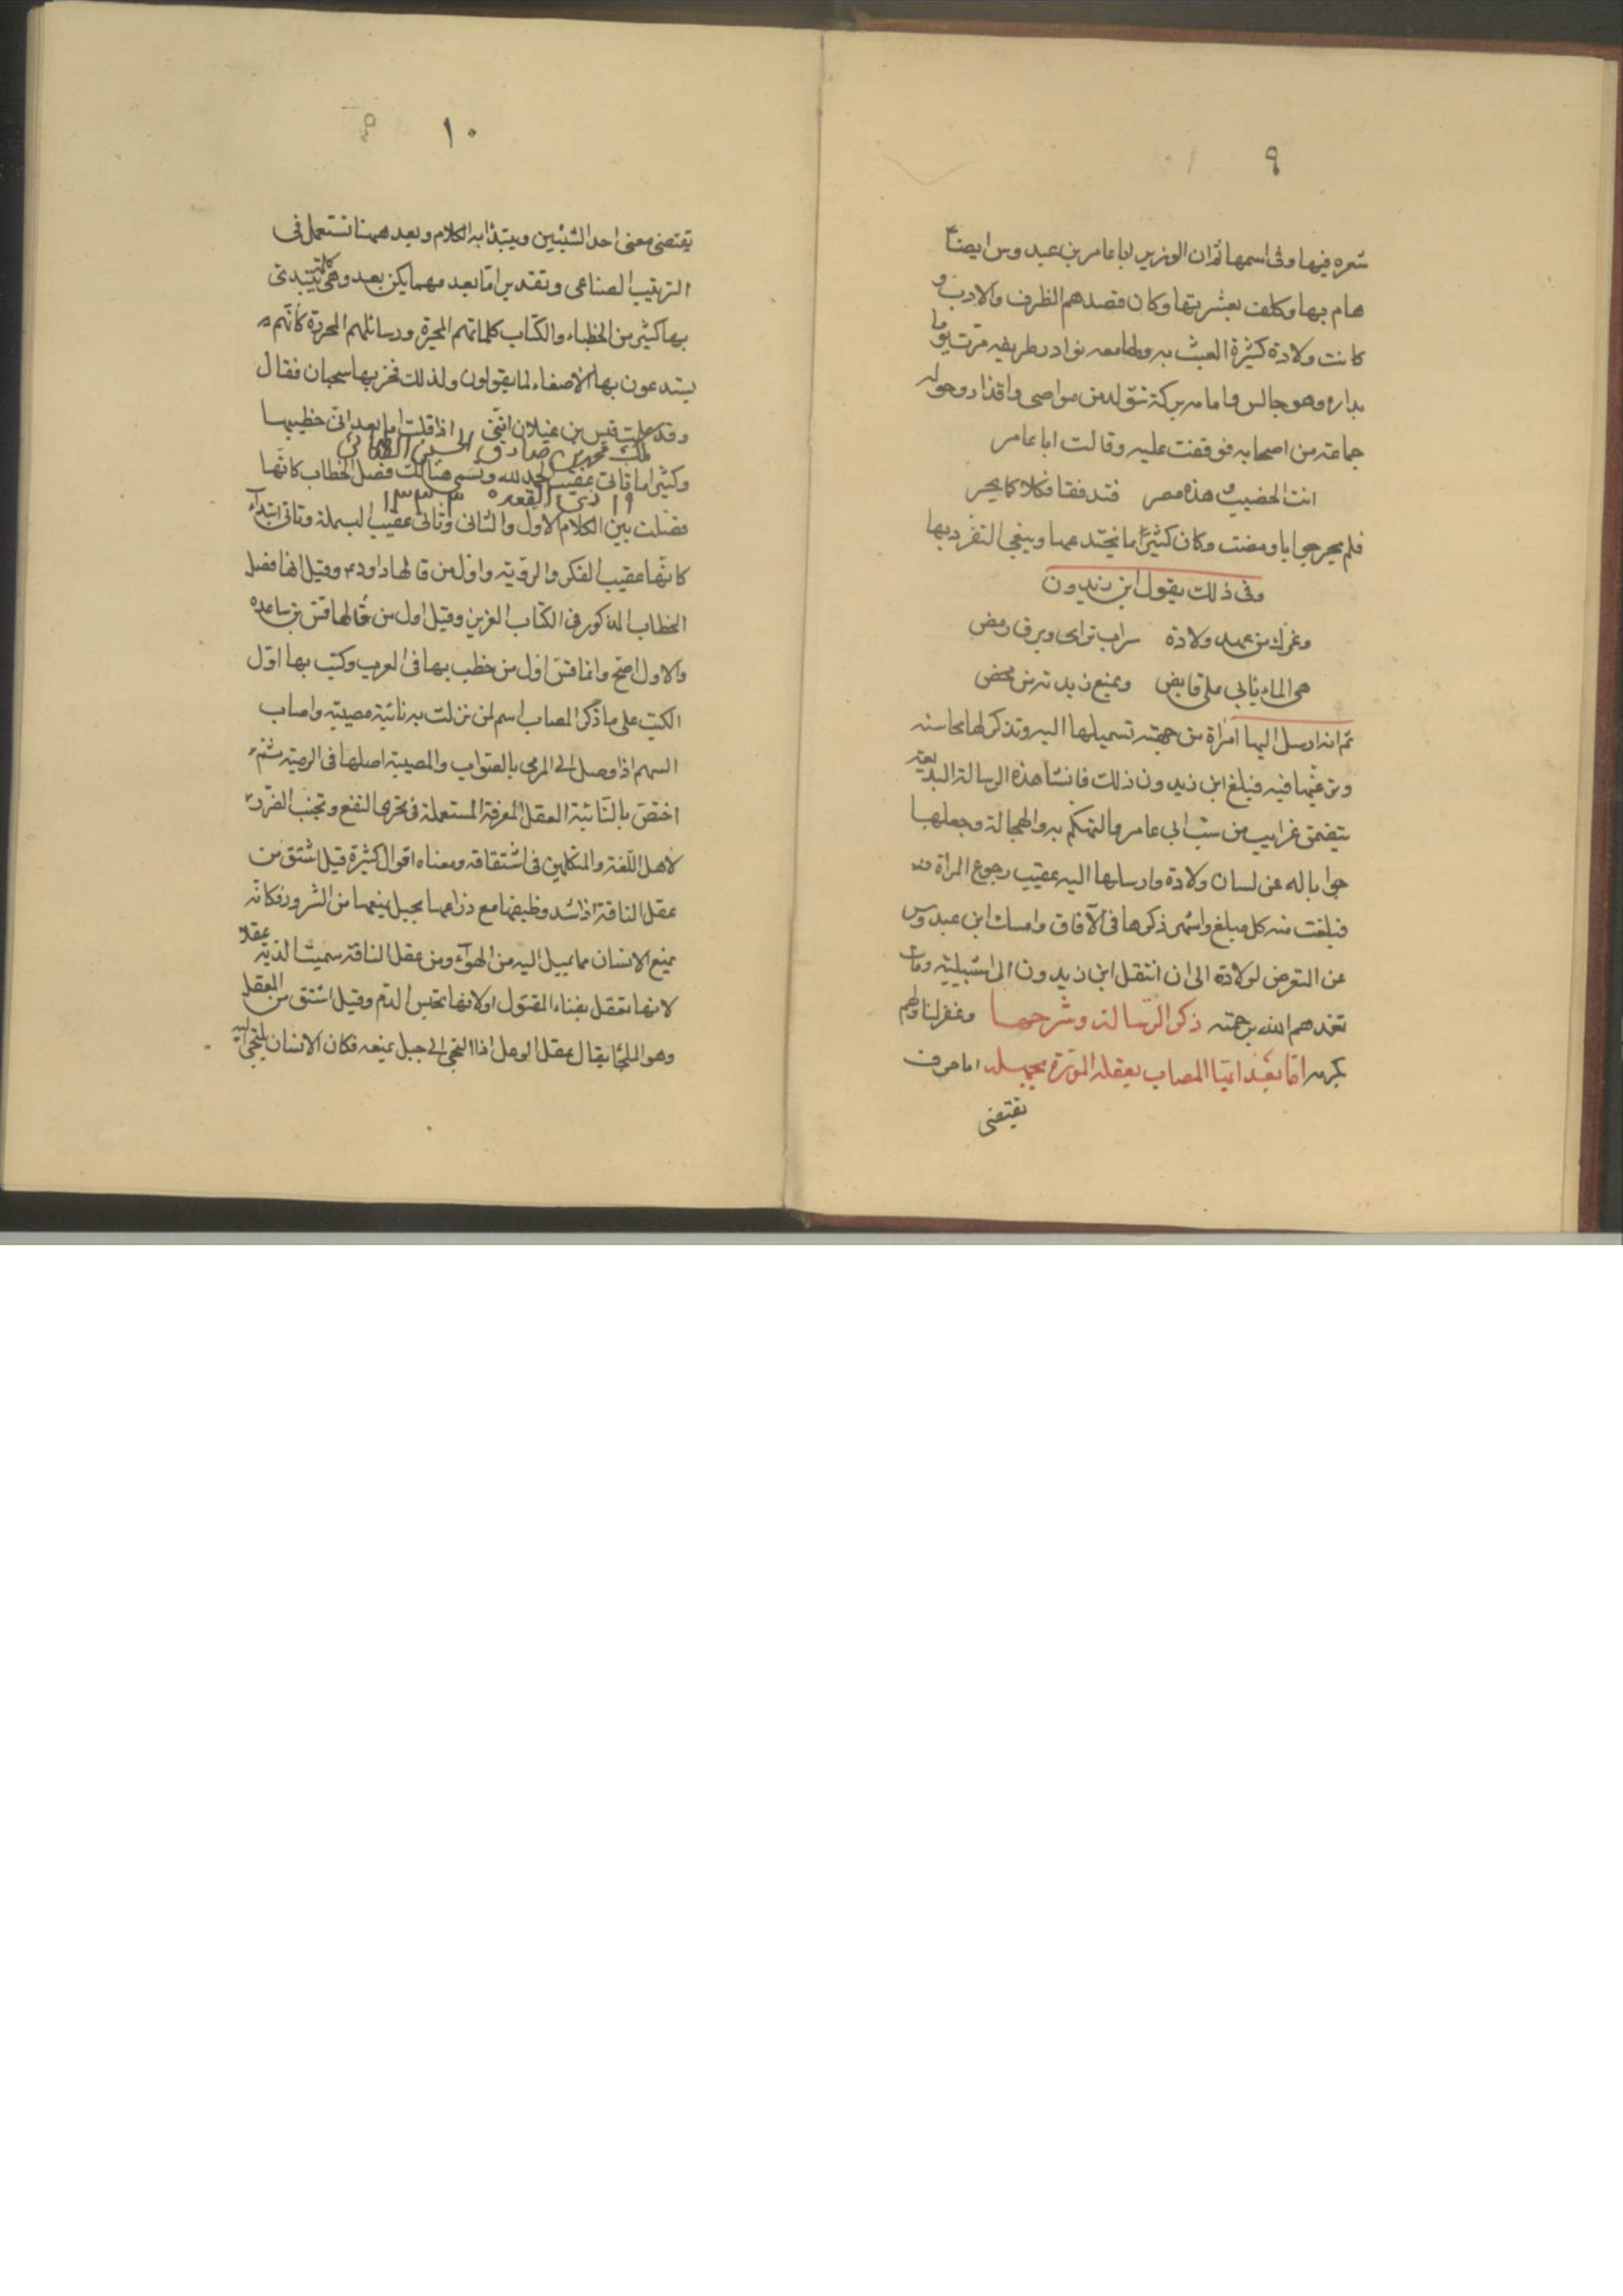 ٩
شعره فيها وفى اسمها ثم ان الوزير ابا عامر بن عبدوس ايضا
هام بها وكلف بعشرتها وكان قصدهم الظرف والادب و
كانت ولادة كثيرة العبث به ولها معه نوادر طريفه مرت يوما
بداره وهو جالس وامامه بركة تتولد من مواصى واقذار وحوله
جماعة من اصحابه فوقفت عليه وقالت ابا عامر
انت الخضيب وهذه مصر فتدفقا فكلاكما بحر
فلم يحر جوابا ومضت وكان كثيرا ما يجتد عها ويبغى التفرد بها
وفى ذلك يقول ابن زيدون
وغرك من عهد ولادة سراب تراى وبرق ومض
هى الماء يابى على قابض ويمنع زبدته من مخض
ثم انه ارسل اليها امراة من جهته تسميلها اليه وتذكر لها محاسنه
وترغبها فيه فبلغ ابن زيدون ذلك فانشا هذه الرسالة البديعة
يتضمن غرايب من سب ابى عامر والتهكم به والهجا له وجعلها
جوابا له عن لسان ولادة وارسلها اليه عقيب رجوع المراة منه
فبلغت منه كل مبلغ واشهر ذكرها فى الآفاق وامسك ابن عبدوس
عن التعرض لولادة الى ان انتقل ابن زيدون الى اشبيلية ومات
تغمدهم الله برحمته ذكر الرسالة وشرحها وغفر لنا ولهم
بكرمه اما بعد ايها المصاب بعقله المورط بجهله اما حرف
يقتضى
١٠
يقتضى معنى احد الشيئين ويبتدا به الكلام وبعد ههنا تستعمل فى
الترتيب الصناعى وتقدير اما بعد مهما يكن بعد وهى كلمة يبتدئ
بها كثير من الخطباء والكتاب كلماتهم المحبرة ورسائلهم المحررة كانهم
يستدعون بها الاصغاء لما يقولون ولذلك فخر بها سحبان فقال
وقد علمت قيس بن غيلان اننى اذا قلت اما بعد انى خطيبها
ملك محمد بن صادق الحسينى الطباطبائى
وكثيرا ما تاتى عقيب الحمد لله وتسمى هنالك فصل الخطاب كانها
١٩ ذى القعده ١٣٣٣
فصلت بين الكلام الاول والثانى وتاتى عقيب البسملة وتاتى ابتداء
كانها عقيب الفكر والروية واول من قالها داود ع وقيل انها فصل
الخطاب المذكور فى الكتاب العزيز وقيل اول من قالها قس بن ساعده
والاول اصح وانما قس اول من خطب بها فى العرب وكتب بها اول
الكتب على ما ذكر المصاب اسم لمن نزلت به نائبة مصيبة واصاب
السهم اذا وصل الى المرمى بالصواب والمصيبة اصلها فى الرمية ثم
اختص بالنائبة العقل المعرفة المستعملة فى تحرى النفع وتجنب الضرر
لاهل اللغة والمتكلمين فى اشتقاقه ومعناه اقوال كثيرة قيل اشتق من
عقل الناقة اذا شد وظيفها مع ذراعها بحبل يمنعها من الشرود فكانه
يمنع الانسان مما يميل اليه من الهوآء ومن عقل الناقة سميت الدية عقلا
لانها تعقل بفناء المقتول او لانها تحبس الدم وقيل اشتق من المعقل
وهو الملجا يقال عقل الوعل اذا التجى الى جبل يمنعه فكان الانسان يلتجى اليه